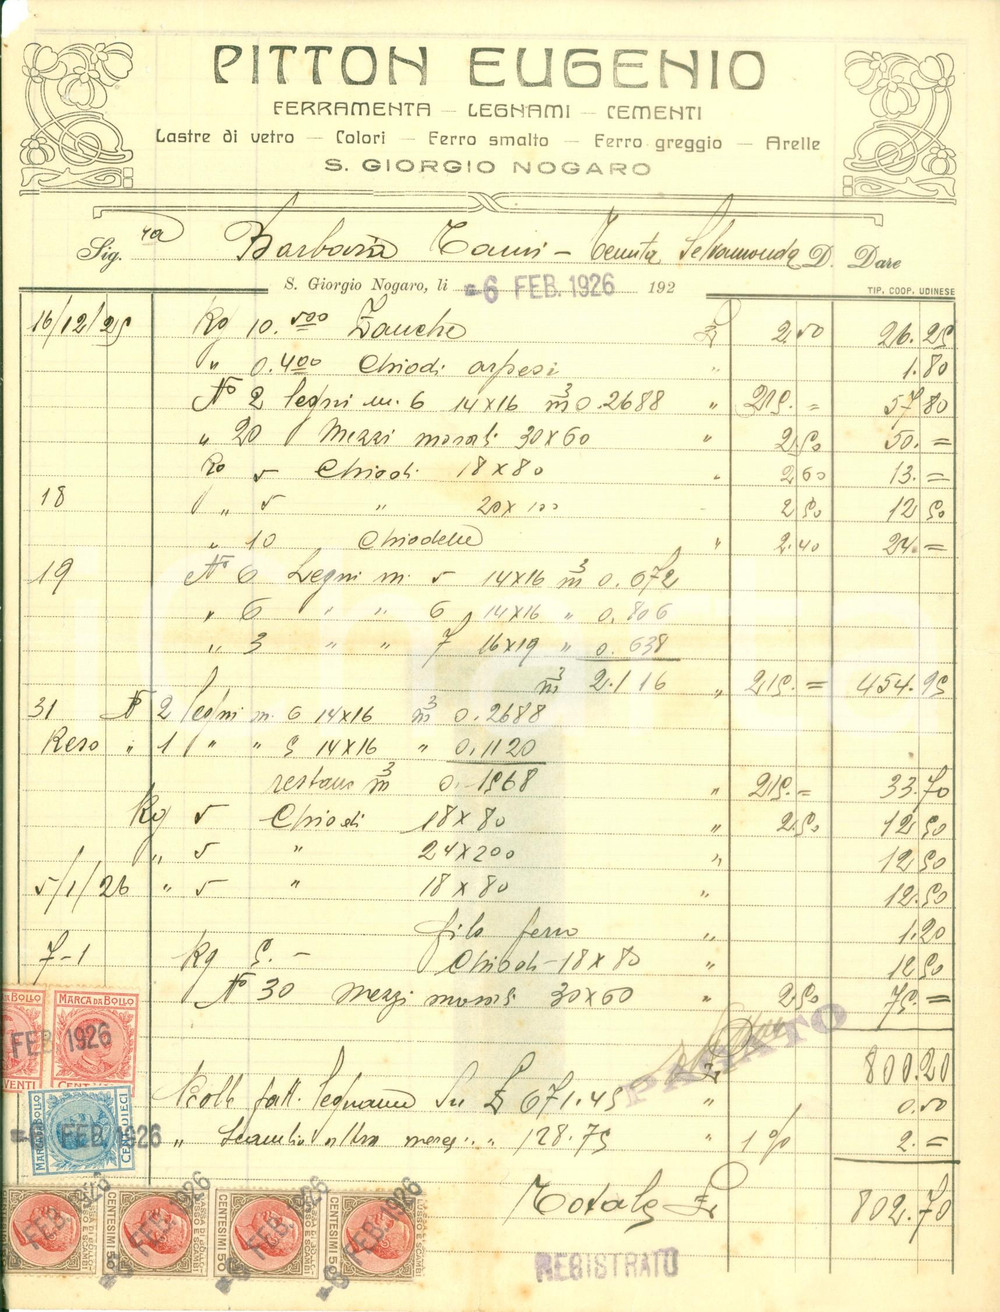 PITTON EUGENIO
FERRAMENTA — LEGNAMI — CEMENTI
Lastre di vetro — Colori — Ferro smalto — Ferro greggio — Arelle
S. GIORGIO NOGARO
Sig. ra Tenuta Selvamonda D. Dare
S. Giorgio Nogaro, li - 6 FEB. 1926 192
TIP. COOP. UDINESE
16/12/25 Kg 10.500 Zanche £ 2.50 26.25
" 0.400 Chiodi arpesi " 1.80
N° 2 legni m. 6 14x16 m3 0.2688 " 215.= 57.80
" 20 Mezzi morali 30x60 " 2.50 50.=
Kg 5 Chiodi 18x80 " 2 60 13.=
18 " 5 " 20x100 2 50 12 50
" 10 Chiodelle " 2.40 24.=
19 N° 6 Legni m. 5 14x16 m3 0.672
" 6 " " 6 14x16 " 0.806
" 3 " " 7 16x19 " 0.638
m3 2.116 " 215.= 454.95
31 N 2 legni m. 6 14x16 m3 0.2688
Reso " 1 " " 5 14x16 " 0.1120
restano m3 0.1568 " 215.= 33.70
Kg 5 Chiodi 18x80 " 2.50 12.50
" 5 " 24x200 " 12.50
5/1/26 " 5 " 18x80 " 12.50
filo ferro " 1.20
7-1 Kg 5.- Chiodi 18x80 " 12.50
N° 30 Mezzi morali 30x60 " 2.50 75.=
PAGATO
£ 800.20
fatt. legname su £ 671.45 " 0.50
" Scambio altra merce " 128.75 " 1% 2.=
Totale £ 802.70
REGISTRATO
MARCA DA BOLLO
FEB. 1926
VENTI
MARCA DA BOLLO
CENT. DIECI
- 6 FEB. 1926
CENTESIMI 50
CENTESIMI 50
CENTESIMI 50
- 6 FEB. 1926
- 6 FEB. 1926
- 6 FEB. 1926
- 6 FEB. 1926